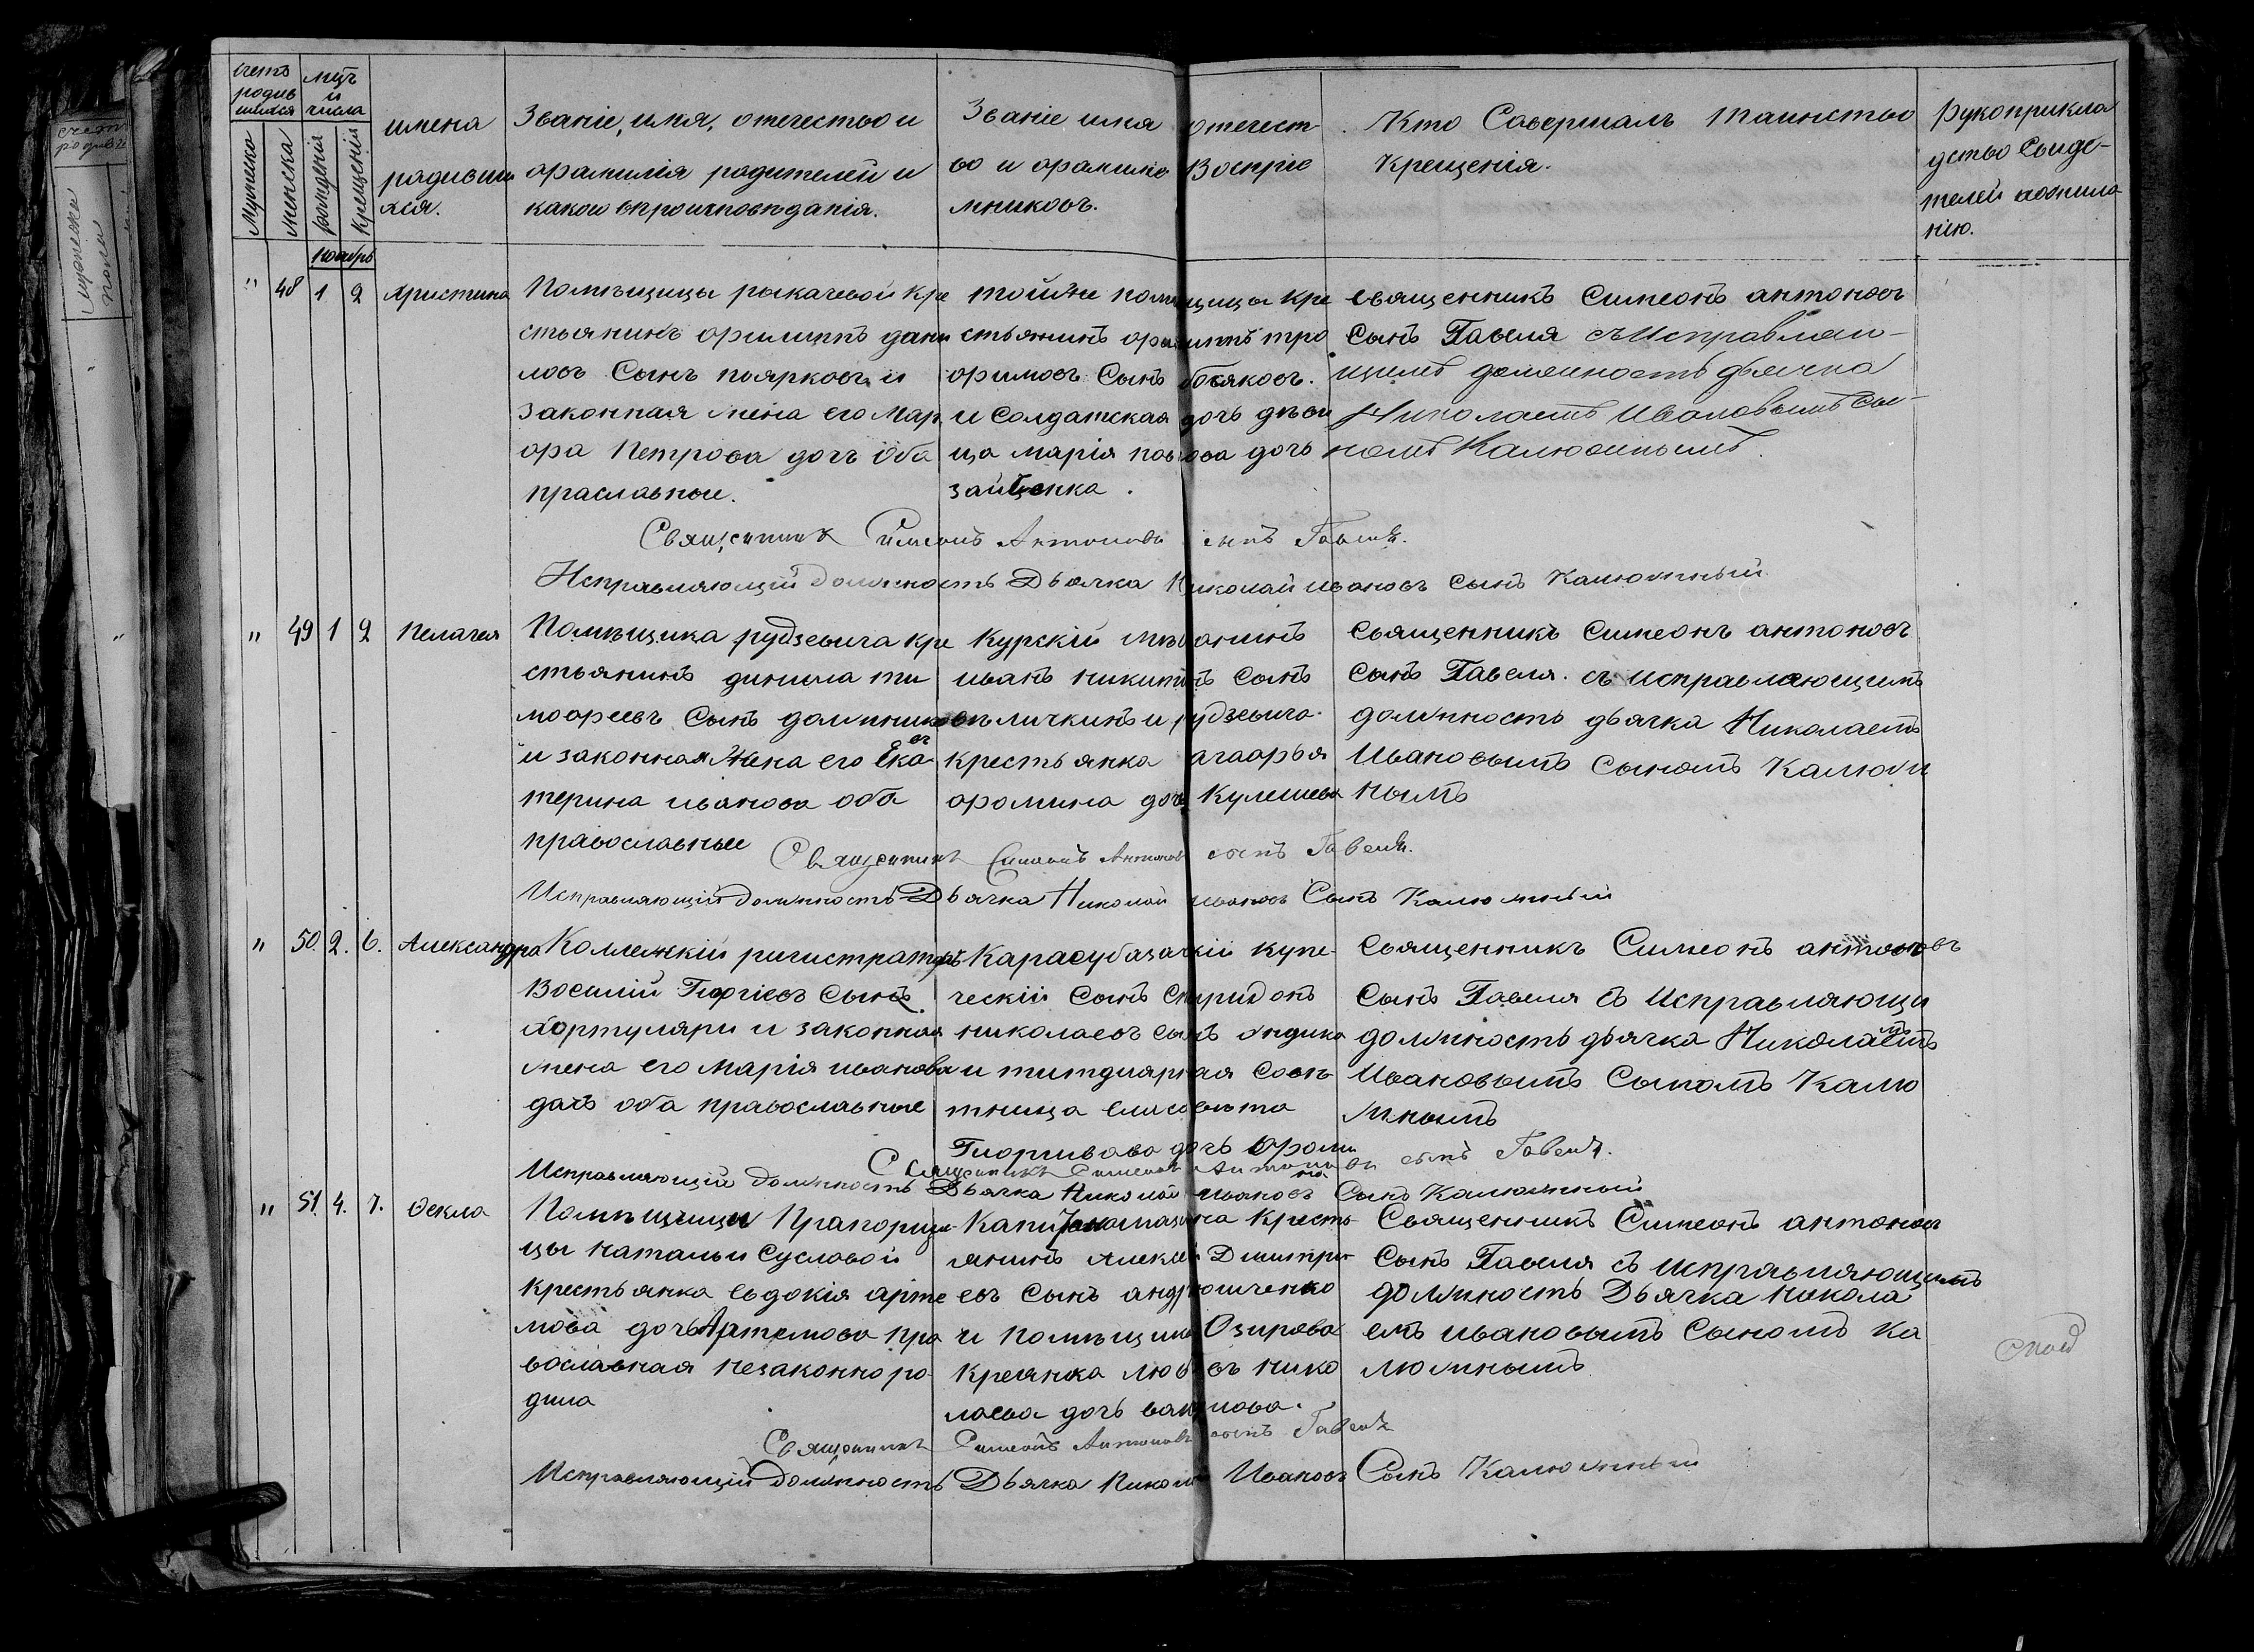 счетъ родив шихся
мцъ и числа
Мужеска
женска
рожденія
крещенія
имена родивши хся.
Званіе, имя, отечество и
фамилія родителей и
какого вѣроисповѣданія.
Званіе имя отечест
во и фамилія Воспріе
мниковъ.
Кто Савершалъ Таинство
Крещенія.
Рукоприкла
дство Свиде-
телей
нію.
ноябрь
" 48 1 2 Христина
Помѣщицы рыкачевой кре
стьянинъ филиппъ дани
ловъ Сынъ поярковъ и
законная жена его Мар
фа Петрова дочь Оба
праславные.
тойже помѣщицы кре
стьянинъ филиппъ тро
фимовъ Сынъ босяковъ.
и Солдатская дочь дѣви
ца марія павлова дочь
зайценка.
священникъ Симеонъ антоновъ
Сынъ Гавеля съ Исправляю-
щимъ должность дьячка
Николаемъ Ивановымъ Сы-
номъ Калюжнымъ.
Священникъ Симеонъ Антоновъ сынъ Гавеля.
Исправляющій должность Дьячка Николай ивановъ Сынъ Калюжный
" 49 1 2 Пелагея
Помѣщика рудзевича кре
стьянинъ динила ти
мофеевъ Сынъ должников
и законная Жена его Ека
терина иванова оба
православные
Курскій мѣщанинъ
иванъ никитинъ Сынъ
личкинъ и рудзевича
крестьянка агафья
фомина дочь Кулешева
священникъ Симеонъ антоновъ
Сынъ Гавеля. съ исправляющимъ
должность дьячка Николаемъ
Ивановымъ Сыномъ Калюж
нымъ
Священникъ Симеонъ Антоновъ сынъ Гавеля.
Исправляющій должность Дьячка Николай ивановъ Сынъ Калюжный
" 50. 2. 6. Александра
Коллежскій ригистраторъ
Василій Гиоргіевъ Сынъ
хортуляри и законная
жена его марія иванова
дочь оба православные
Карасубазаскій купе-
ческій Сынъ Спиридонъ
николаевъ сынъ
и титулярная Совѣ
тница елисавѣта
Гиоргивава дочь
священникъ Симеонъ антоновъ
Сынъ Гавеля съ Исправляющи
мъ
должность дьячка Николаемъ
Ивановымъ Сыномъ Калю
жнымъ
Священникъ Симеонъ Антоновъ сынъ Гавеля.
Исправляющій должность Дьячка Николай Ивановъ Сынъ Калюжный
" 51. 4. 7. Фекла
Помѣщицы Прапорщи
цы натальи Сусловой
крестьянка евдокія арте
мова дочь Артемова пра
вославная незаконно ро
дила
Кресть
янинъ Алексей Дмитри
евъ Сынъ андрющенко
и помѣщика Озирова
любовь нико
лаева дочь
Священникъ Симеонъ антоновъ
Сынъ Гавеля съ исправляющимъ
должность Дьячка никола
емъ ивановымъ Сыномъ ка
люжнымъ
Священникъ Симеонъ Антоновъ сынъ Гавеля
Исправляющій должность Дьячка Николай Ивановъ Сынъ Калюжный